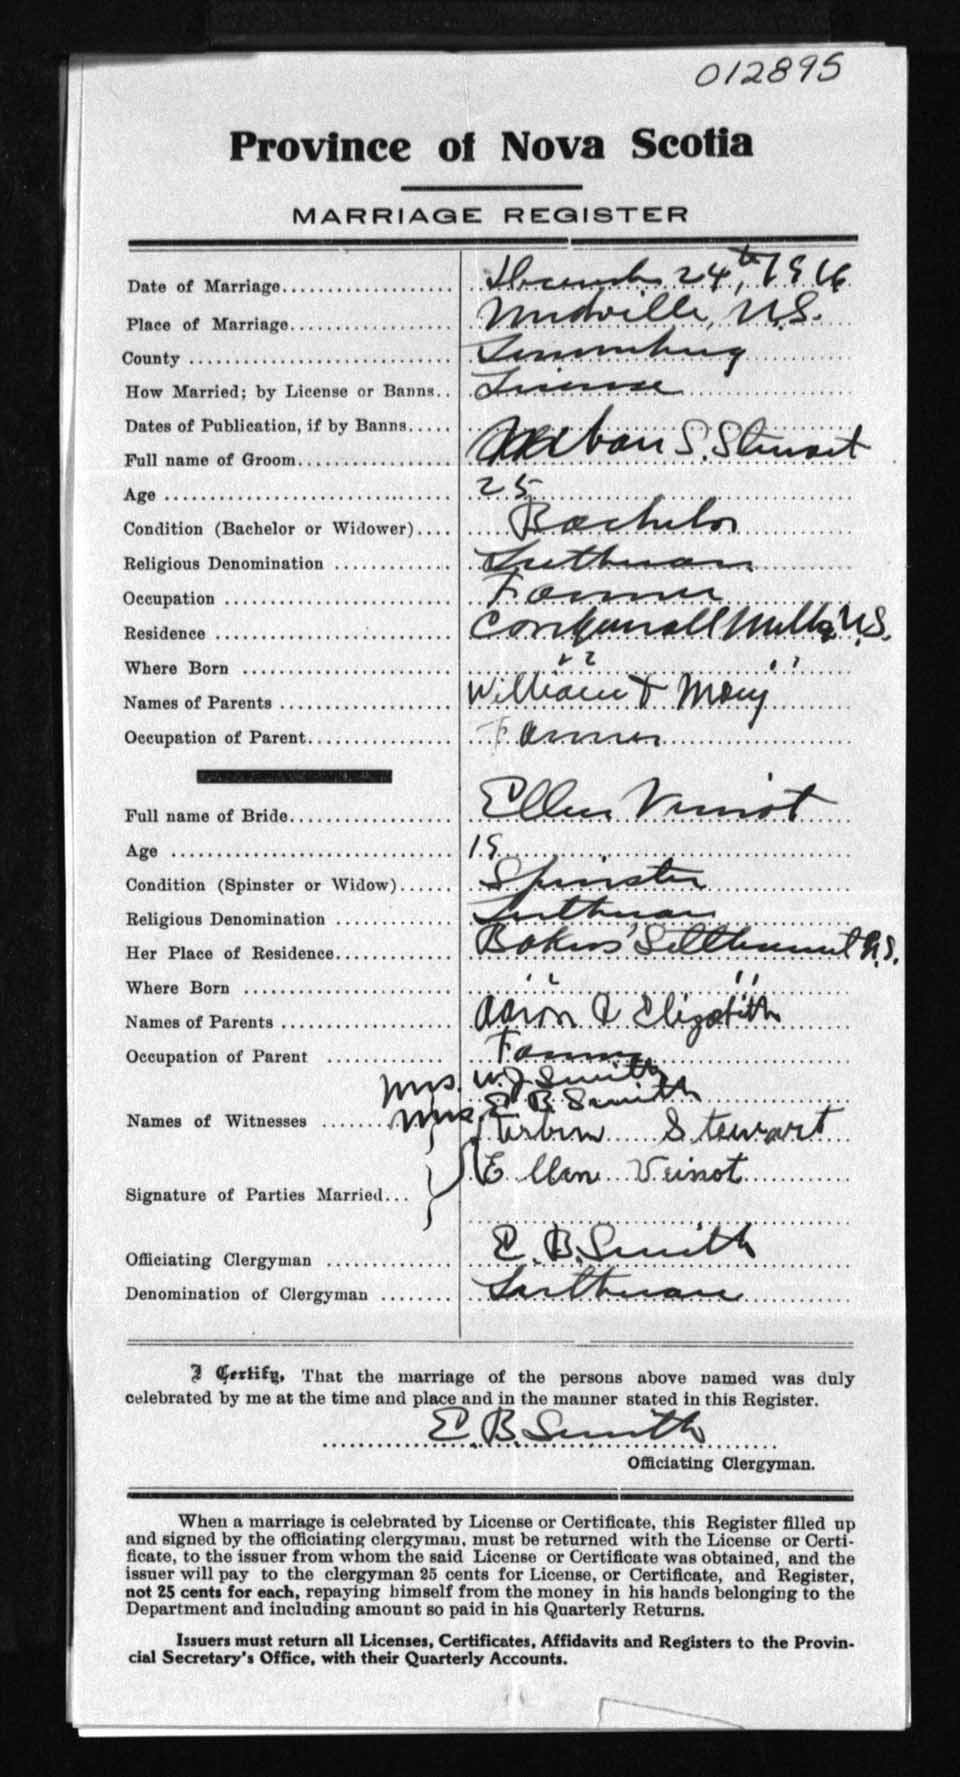 012895
Province of Nova Scotia
MARRIAGE REGISTER
Date of Marriage.................... December 24th, 1916
Place of Marriage................... Midville, N.S.
County ............................. Lunenburg
How Married; by License or Banns.. License
Dates of Publication, if by Banns.....
Full name of Groom.................. S. Stewart
Age ................................ 25
Condition (Bachelor or Widower).... Bachelor
Religious Denomination ............. Lutheran
Occupation ......................... Farmer
Residence .......................... Conquerall Mills N.S.
Where Born ......................... " "
Names of Parents ................... William & Mary
Occupation of Parent................ Farmer
Full name of Bride.................. Ellen Veinot
Age ................................ 19
Condition (Spinster or Widow)...... Spinster
Religious Denomination ............. Lutheran
Her Place of Residence............. Bakers Settlement N.S.
Where Born ......................... " "
Names of Parents ................... Aaron & Elizabeth
Occupation of Parent ............... Farmer
Mrs. W.J. Smith
Names of Witnesses ........ Mrs. E.B. Smith
Stewart
Ellen Veinot
Signature of Parties Married...
Officiating Clergyman .............. E. B. Smith
Denomination of Clergyman ........ Lutheran
I Certify, That the marriage of the persons above named was duly
celebrated by me at the time and place and in the manner stated in this Register.
E. B. Smith
Officiating Clergyman.
When a marriage is celebrated by License or Certificate, this Register filled up
and signed by the officiating clergyman, must be returned with the License or Certi-
ficate, to the issuer from whom the said License or Certificate was obtained, and the
issuer will pay to the clergyman 25 cents for License, or Certificate, and Register,
not 25 cents for each, repaying himself from the money in his hands belonging to the
Department and including amount so paid in his Quarterly Returns.
Issuers must return all Licenses, Certificates, Affidavits and Registers to the Provin-
cial Secretary's Office, with their Quarterly Accounts.